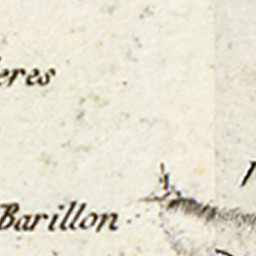 eres
Barillon